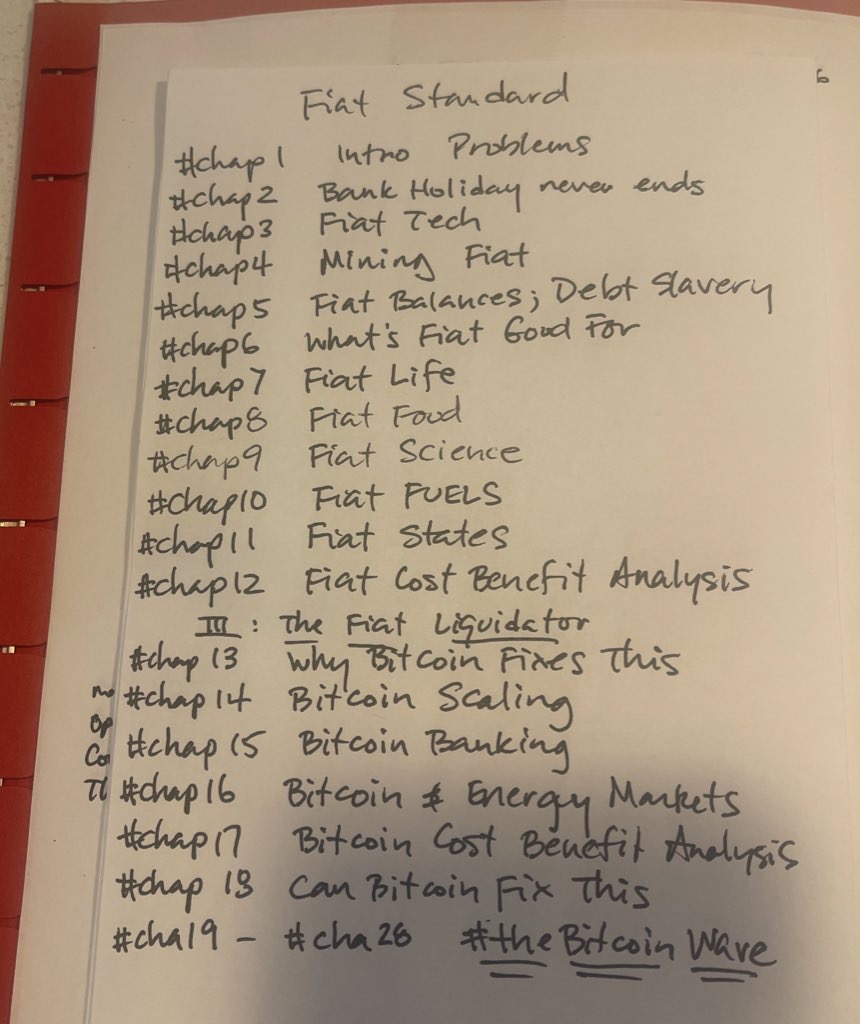 6
Fiat Standard
#chap 1 Intro Problems
#chap 2 Bank Holiday never ends
#chap3 Fiat Tech
#chap4 Mining Fiat
#chap5 Fiat Balances; Debt Slavery
#chap6 What's Fiat Good For
#chap7 Fiat Life
#chap8 Fiat Food
#chap9 Fiat Science
#chap10 Fiat FUELS
#chap11 Fiat States
#chap12 Fiat Cost Benefit Analysis
III: The Fiat Liquidator
#chap 13 Why Bitcoin Fixes This
#chap 14 Bitcoin Scaling
#chap 15 Bitcoin Banking
#chap 16 Bitcoin & Energy Markets
#chap 17 Bitcoin Cost Benefit Analysis
#chap 18 Can Bitcoin Fix This
#cha19 - #cha28 #the Bitcoin Wave